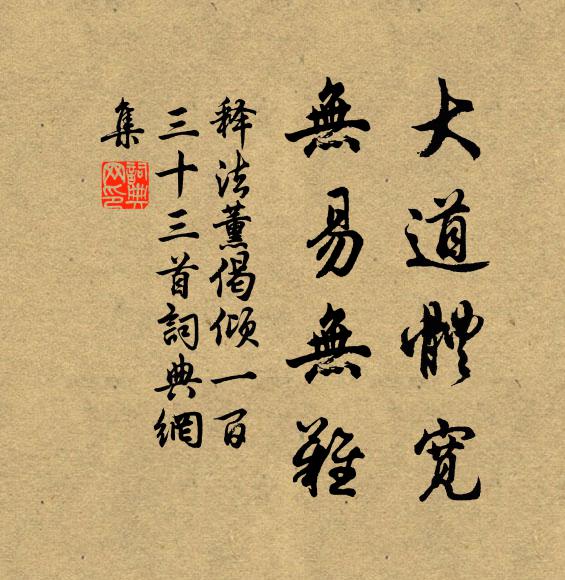 大道體寬
無易無難
释法薰偈倾一百
三十三首詞典網
集
詞典
网印